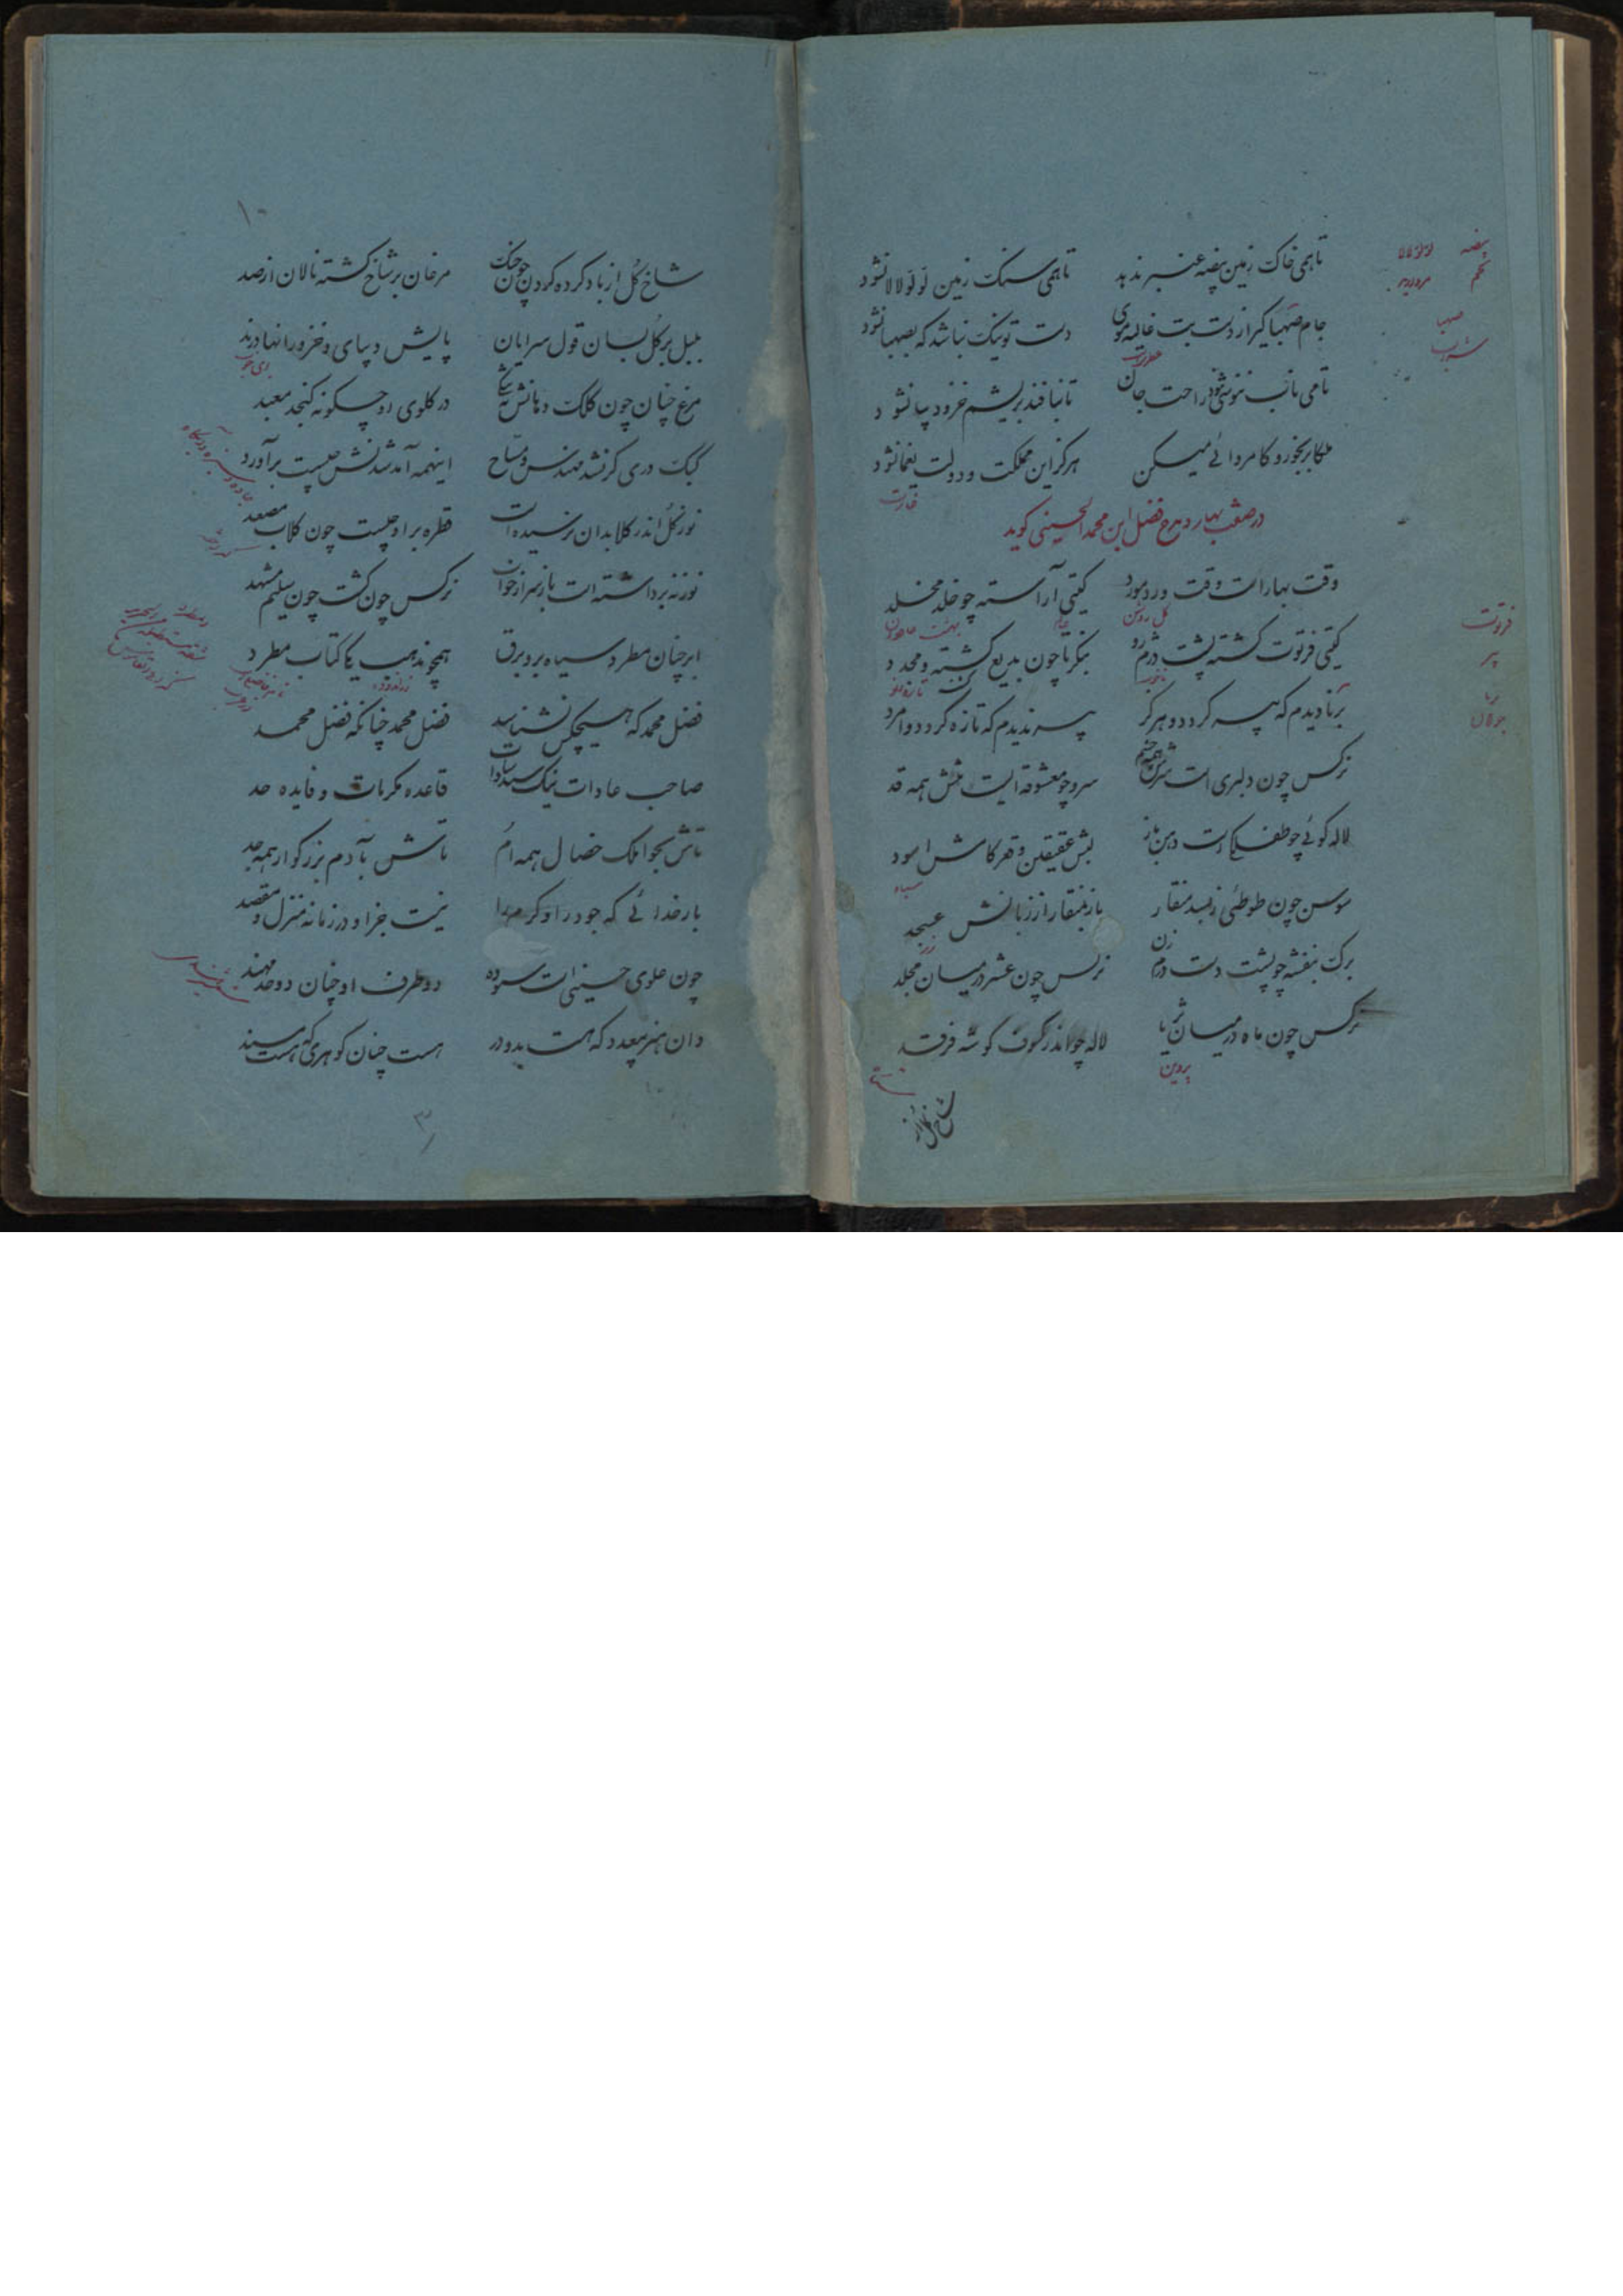 تاهمی خاک زمین بیضه عنبر ندهد تاهمی سنک زمین لؤلؤ لالا نشود
جام صهبا گیر از دست بت غالیه موی دست تو نیک نباشد که بصهبا نشود
تامی ناب ننوشی نبود راحت جان تا نبافند بریشم خز و دیبا نشود
ملکا برخور و کامروائی میکن هرکز این مملکت و دولت یغما نشود
در صفت بهار و مدح فضل ابن محمد الحسینی کوید
وقت بهار است وقت ورد مورد کیتی آراسته چو خلد مخلد
کیتی فرتوت کشته پشت دژم رو بنکر تا چون بدیع کشت و مجدد
برنا دیدم که پیر کردد و هرکز پیر ندیدم که تازه کردد و امرد
نرکس چون دلبری است سرش همه چشم سرو چو معشوقه ایست تنش همه قد
لاله کوئی چو طفلکی است دهن باز لبش عقیقین و قعر کامش اسود
سوسن چون طوطئی ز بسد منقار باز بمنقار از زبانش عسجد
برک بنفشه چو پشت دست درم زن نرکس چون عشر در میان مجلد
نرکس چون ماه در میان ثریا لاله چو اندر کسوف کوشه فرقد
بیضه
تخم
لؤلؤ لالا
مروارید
صهبا
شراب
غارت
کل روشن
فرتوت
پیر
برنا
جوان
سیاه
زر
پروین
شاخ کل از
۱۰
شاخ کل از باد کرده کردن چون چنک مرغان بر شاخ کشته نالان از صد
بلبل بر کل بسان قول سرایان پایش دیبای و خز و رانها در ند
مرغ چنان چون کلک دهانش بتنکی در کلوی او چکونه کنجد معبد
کبک دری کر نشد مهندس و مساح اینهمه آمد شدنش چیست برآورد
نور کل اندر کلابدان نرسیده است قطره بر او چیست چون کلاب مصعد
نور نه برداشته است باز سر از خواب نرکس چون کشت چون سلیم مسهد
ابر چنان مطرد سیاه و برو برق همچو مذهب یکی کتاب مطرد
فضل محمد که هیچکس نشناسد فضل محمد چنانکه فضل محمد
صاحب عادات نیک سید سادات قاعده مکرمات و فایده حد
تاش بحوا ملک خصال همه ام تاش بآدم بزرکوار همه جد
بارخدائی که جود را و کرم را نیست جز او در زمانه منزل و مقصد
چون علوی حسینی است ستوده دو طرف او چنان دو حد مهند
دان هنر بیعدد که هست بدو در هست چنان کوهری که هست مسند